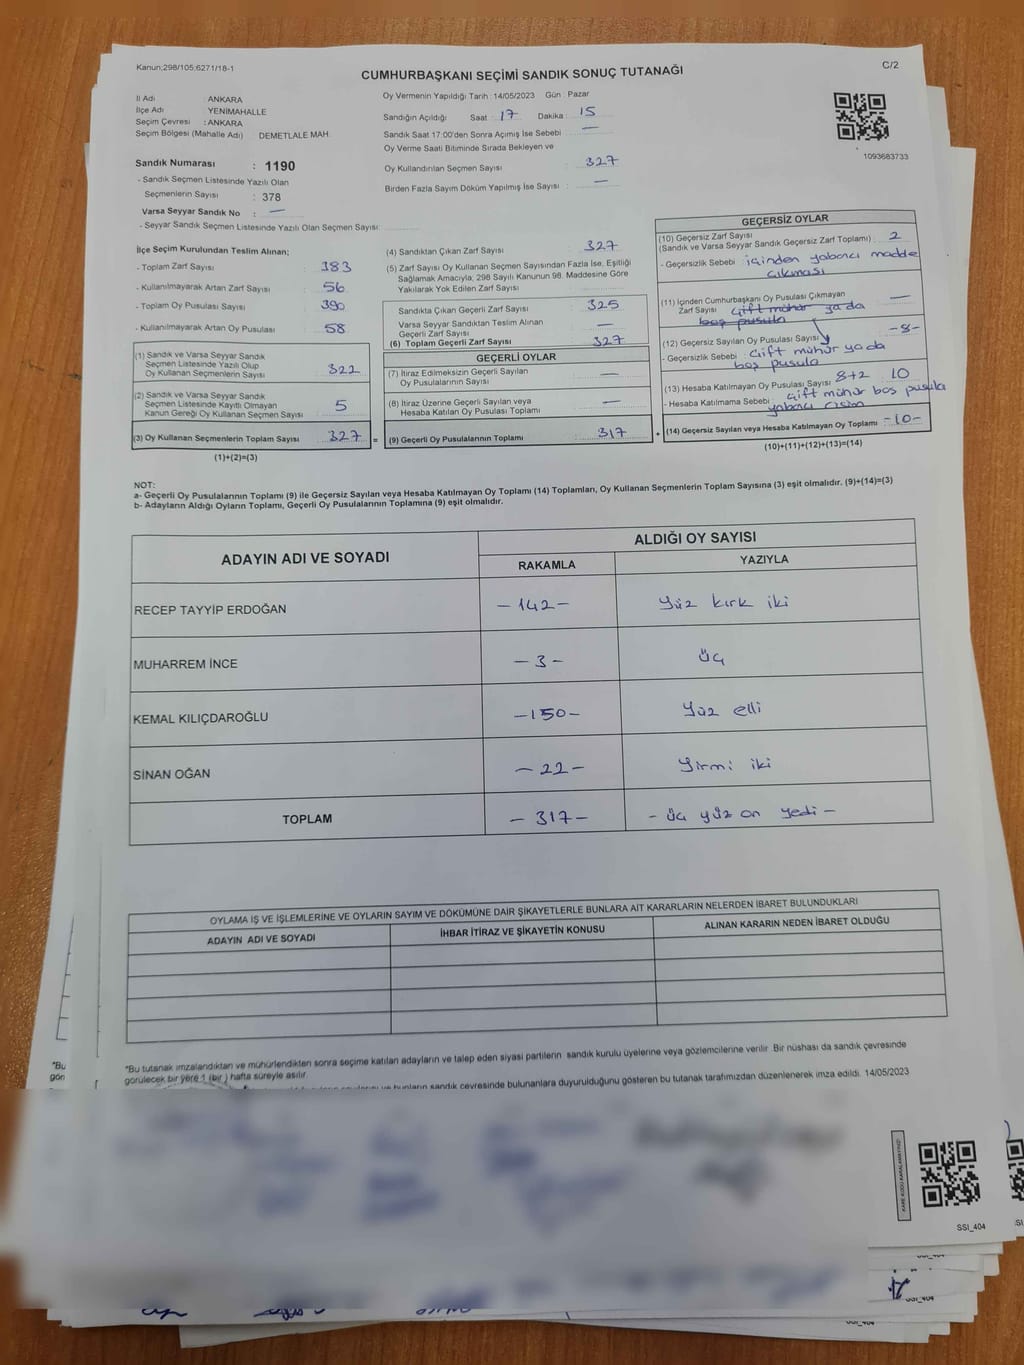 Kanun;298/105;6271/18-1
C/2
CUMHURBAŞKANI SEÇİMİ SANDIK SONUÇ TUTANAĞI
İl Adı : ANKARA
İlçe Adı : YENİMAHALLE
Seçim Çevresi : ANKARA
Seçim Bölgesi (Mahalle Adı) DEMETLALE MAH.
Sandık Numarası : 1190
- Sandık Seçmen Listesinde Yazılı Olan
Seçmenlerin Sayısı : 378
Varsa Seyyar Sandık No : —
- Seyyar Sandık Seçmen Listesinde Yazılı Olan Seçmen Sayısı:
Oy Vermenin Yapıldığı Tarih : 14/05/2023 Gün : Pazar
Sandığın Açıldığı Saat : 17 Dakika : 15
Sandık Saat 17:00'den Sonra Açımış İse Sebebi : —
Oy Verme Saati Bitiminde Sırada Bekleyen ve
Oy Kullandırılan Seçmen Sayısı : 327
Birden Fazla Sayım Döküm Yapılmış İse Sayısı : —
1093683733
İlçe Seçim Kurulundan Teslim Alınan;
- Toplam Zarf Sayısı : 383
- Kullanılmayarak Artan Zarf Sayısı : 56
- Toplam Oy Pusulası Sayısı : 390
- Kullanılmayarak Artan Oy Pusulası : 58
(1) Sandık ve Varsa Seyyar Sandık
Seçmen Listesinde Yazılı Olup
Oy Kullanan Seçmenlerin Sayısı : 322
(2) Sandık ve Varsa Seyyar Sandık
Seçmen Listesinde Kayıtlı Olmayan
Kanun Gereği Oy Kullanan Seçmen Sayısı : 5
(3) Oy Kullanan Seçmenlerin Toplam Sayısı : 327 =
(1)+(2)=(3)
(4) Sandıktan Çıkan Zarf Sayısı : 327
(5) Zarf Sayısı Oy Kullanan Seçmen Sayısından Fazla İse, Eşitliği
Sağlamak Amacıyla; 298 Sayılı Kanunun 98. Maddesine Göre
Yakılarak Yok Edilen Zarf Sayısı :
Sandıkta Çıkan Geçerli Zarf Sayısı : 325
Varsa Seyyar Sandıktan Teslim Alınan
Geçerli Zarf Sayısı : —
(6) Toplam Geçerli Zarf Sayısı : 327
GEÇERLİ OYLAR
(7) İtiraz Edilmeksizin Geçerli Sayılan
Oy Pusulalarının Sayısı : —
(8) İtiraz Üzerine Geçerli Sayılan veya
Hesaba Katılan Oy Pusulası Toplamı : —
(9) Geçerli Oy Pusulalarının Toplamı : 317 +
GEÇERSİZ OYLAR
(10) Geçersiz Zarf Sayısı
(Sandık ve Varsa Seyyar Sandık Geçersiz Zarf Toplamı) : 2
- Geçersizlik Sebebi : içinden yabancı madde
çıkması
(11) İçinden Cumhurbaşkanı Oy Pusulası Çıkmayan
Zarf Sayısı : çift mühür ya da —
boş pusula
(12) Geçersiz Sayılan Oy Pusulası Sayısı : -8-
- Geçersizlik Sebebi : Çift mühür yada
boş pusula
(13) Hesaba Katılmayan Oy Pusulası Sayısı : 8+2 10
- Hesaba Katılmama Sebebi : Çift mühür boş pusula
yabancı cisim
(14) Geçersiz Sayılan veya Hesaba Katılmayan Oy Toplamı : -10-
(10)+(11)+(12)+(13)=(14)
NOT:
a- Geçerli Oy Pusulalarının Toplamı (9) ile Geçersiz Sayılan veya Hesaba Katılmayan Oy Toplamı (14) Toplamları, Oy Kullanan Seçmenlerin Toplam Sayısına (3) eşit olmalıdır. (9)+(14)=(3)
b- Adayların Aldığı Oyların Toplamı, Geçerli Oy Pusulalarının Toplamına (9) eşit olmalıdır.
ADAYIN ADI VE SOYADI
ALDIĞI OY SAYISI
RAKAMLA YAZIYLA
RECEP TAYYİP ERDOĞAN -142- Yüz kırk iki
MUHARREM İNCE -3- Üç
KEMAL KILIÇDAROĞLU -150- Yüz elli
SİNAN OĞAN -22- Yirmi iki
TOPLAM -317- - Üç yüz on yedi -
OYLAMA İŞ VE İŞLEMLERİNE VE OYLARIN SAYIM VE DÖKÜMÜNE DAİR ŞİKAYETLERLE BUNLARA AİT KARARLARIN NELERDEN İBARET BULUNDUKLARI
ADAYIN ADI VE SOYADI İHBAR İTİRAZ VE ŞİKAYETİN KONUSU ALINAN KARARIN NEDEN İBARET OLDUĞU
*Bu tutanak imzalandıktan ve mühürlendikten sonra seçime katılan adayların ve talep eden siyasi partilerin sandık kurulu üyelerine veya gözlemcilerine verilir. Bir nüshası da sandık çevresinde
görülecek bir yere 1 (bir ) hafta süreyle asılır.
bunların sandık çevresinde bulunanlara duyurulduğunu gösteren bu tutanak tarafımızdan düzenlenerek imza edildi. 14/05/2023
*Bu
gör
SSI_404